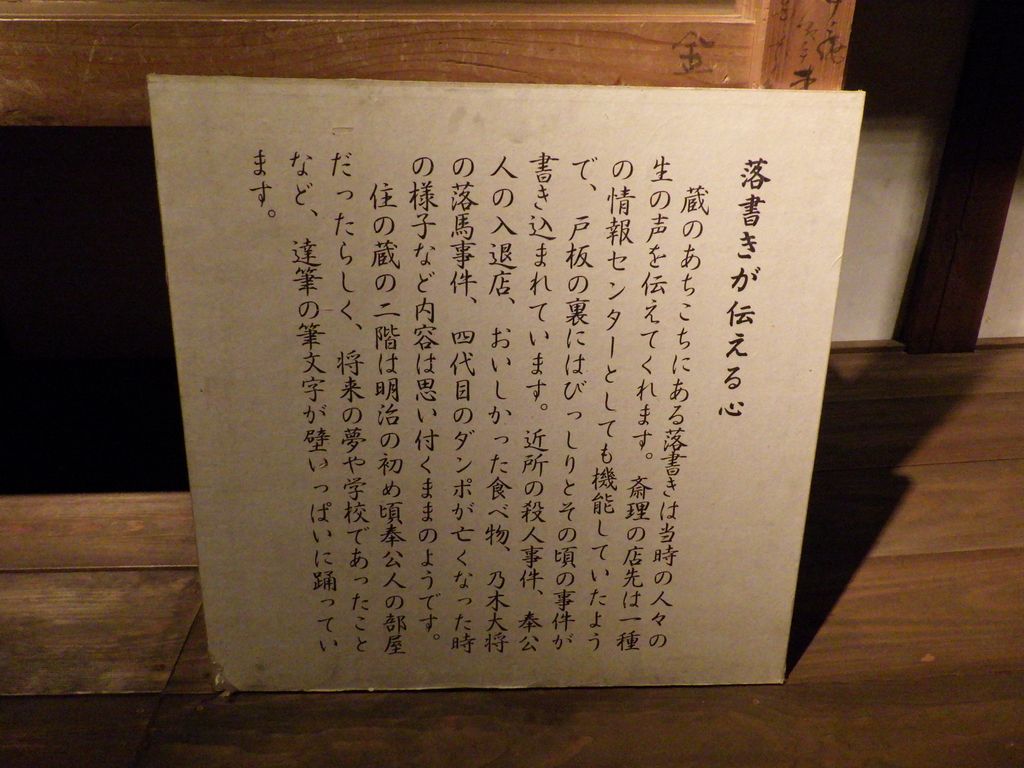 落書きが伝える心
蔵のあちこちにある落書きは当時の人々の
生の声を伝えてくれます。斎理の店先は一種
の情報センターとしても機能していたよう
で、戸板の裏にはびっしりとその頃の事件が
書き込まれています。近所の殺人事件、奉公
人の入退店、おいしかった食べ物、乃木大将
の落馬事件、四代目のダンポが亡くなった時
の様子など内容は思い付くままのようです。
住の蔵の二階は明治の初め頃奉公人の部屋
だったらしく、将来の夢や学校であったこと
など、達筆の筆文字が壁いっぱいに踊ってい
ます。
金